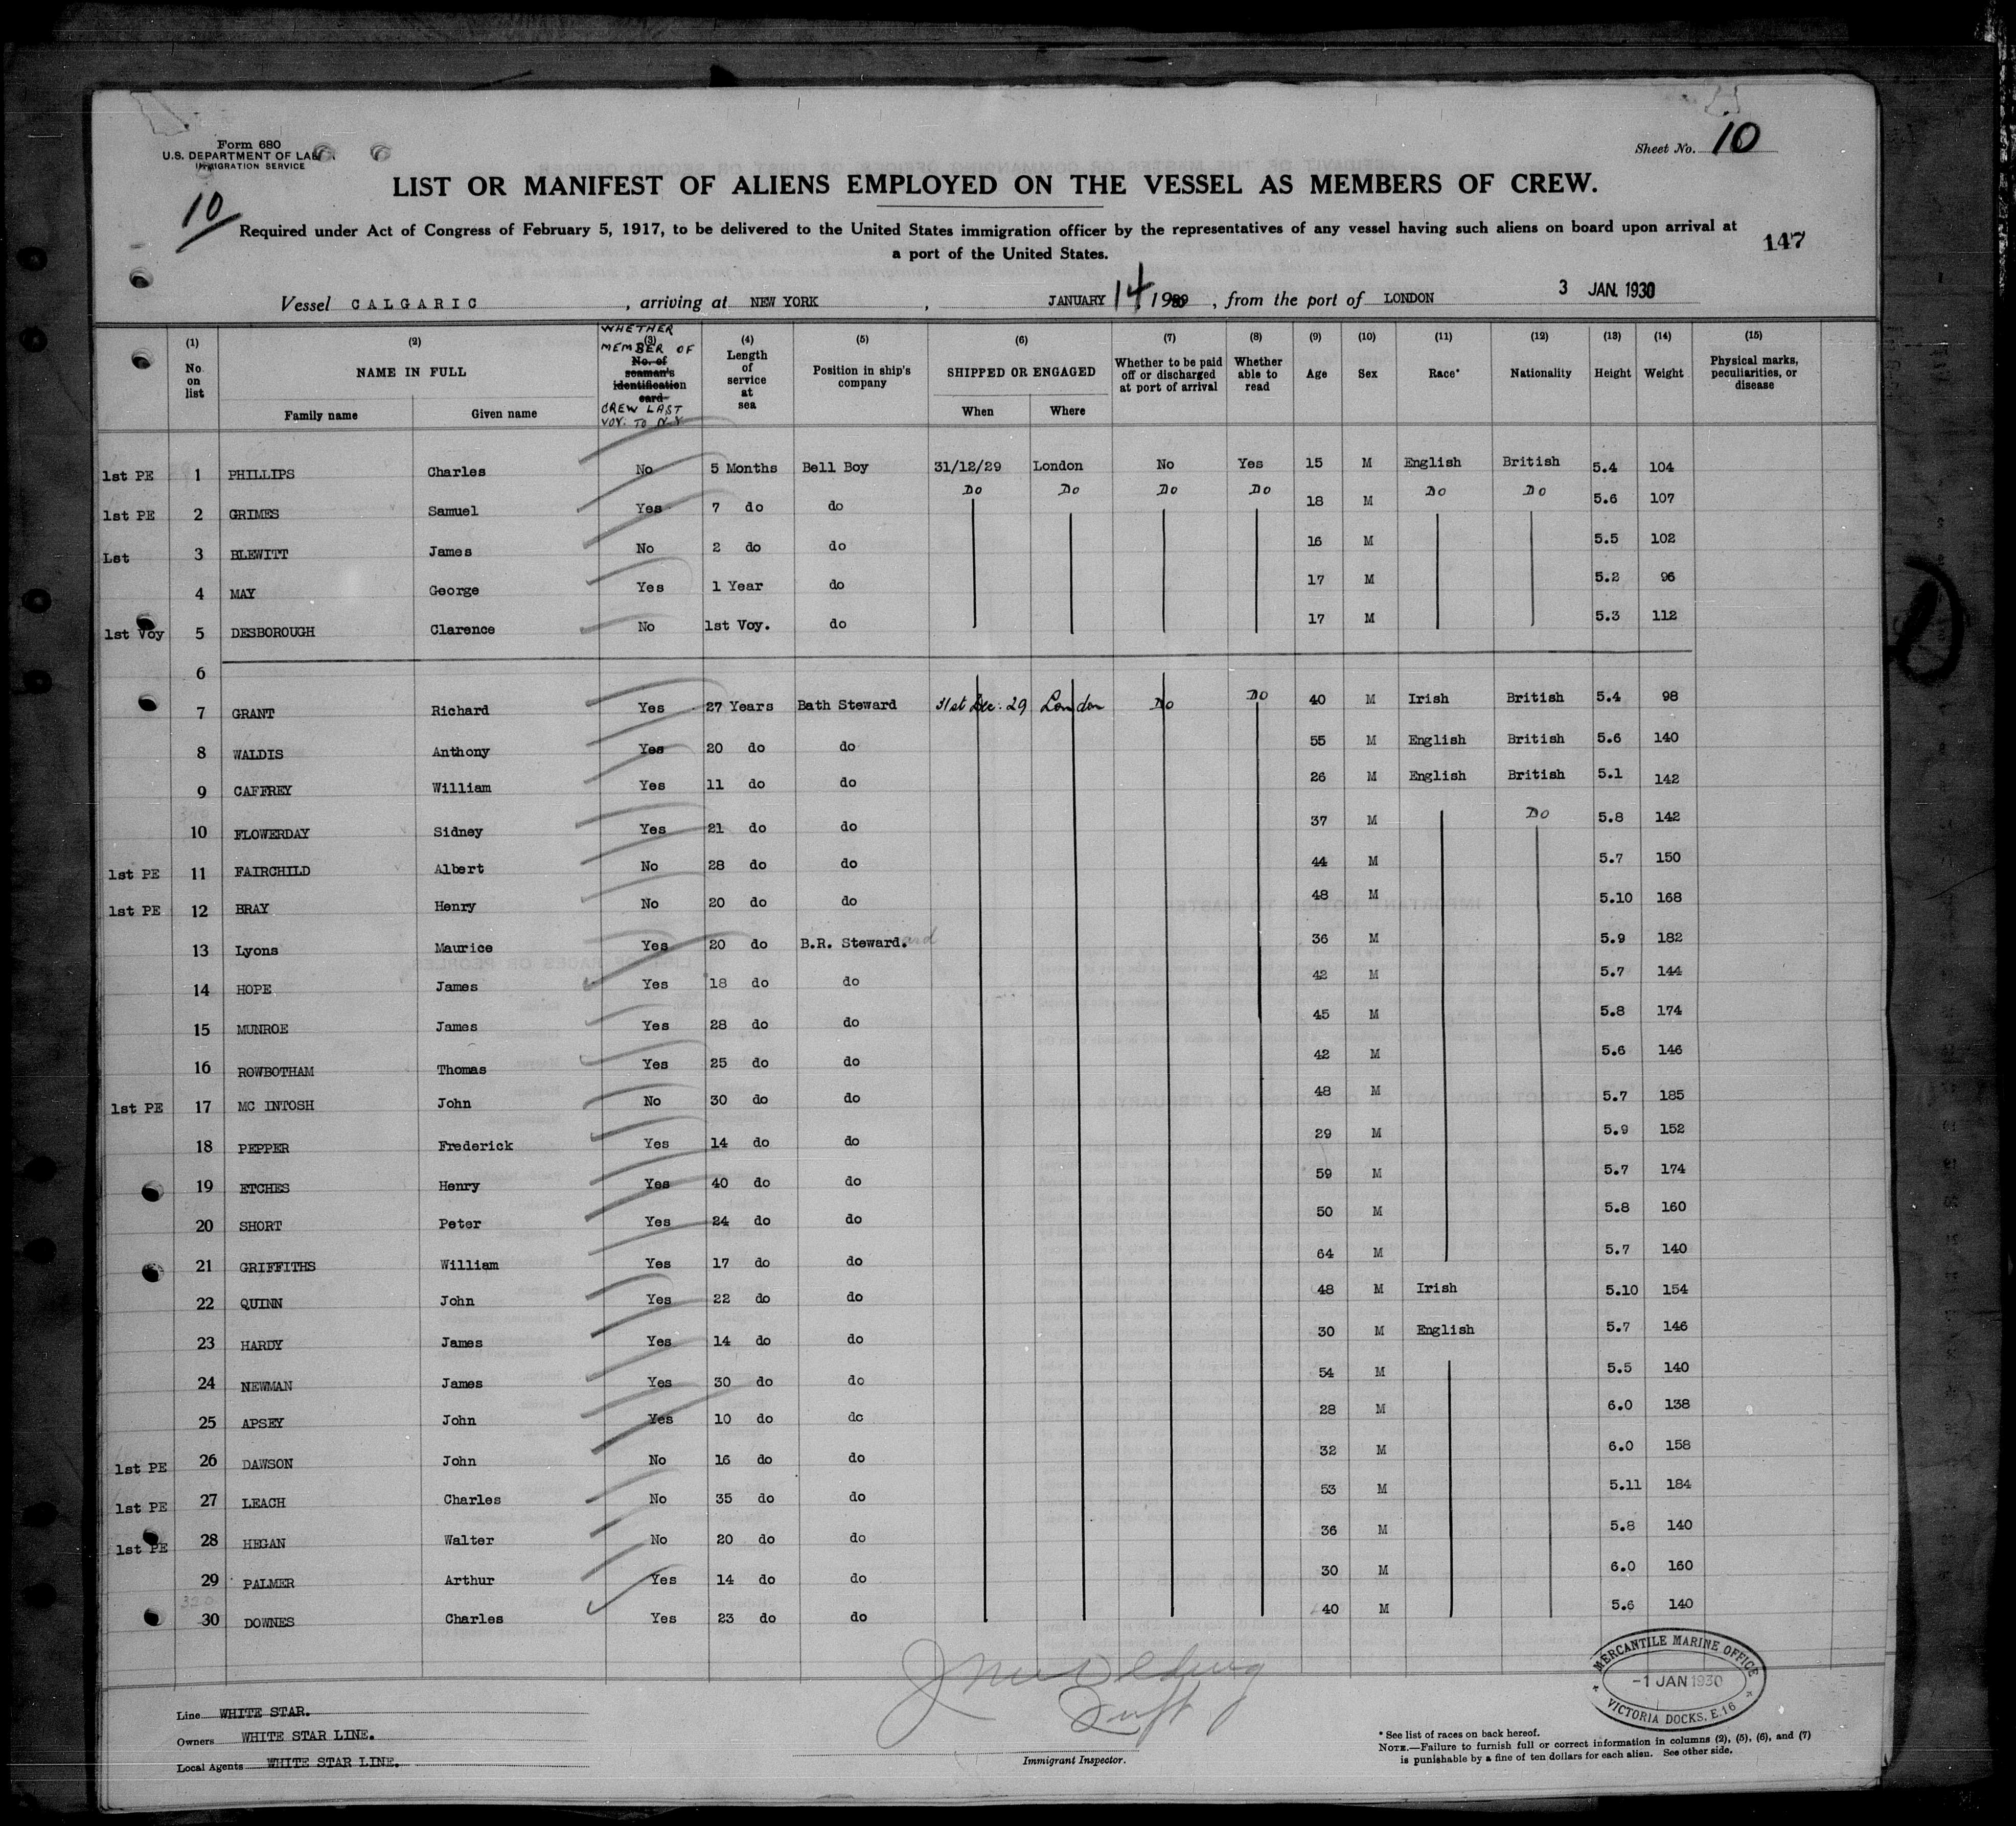 Form 680
U.S. DEPARTMENT OF LABOR
IMMIGRATION SERVICE
Sheet No. 10
LIST OR MANIFEST OF ALIENS EMPLOYED ON THE VESSEL AS MEMBERS OF CREW.
10
Required under Act of Congress of February 5, 1917, to be delivered to the United States immigration officer by the representatives of any vessel having such aliens on board upon arrival at
a port of the United States.
147
Vessel CALGARIC, arriving at NEW YORK, JANUARY 14 19, from the port of LONDON 3 JAN. 1930
(1) No. on list
(2) NAME IN FULL Family name Given name
WHETHER MEMBER OF (3) No. of seaman's identification card CREW LAST VOY. TO N.Y
(4) Length of service at sea
(5) Position in ship's company
(6) SHIPPED OR ENGAGED When Where
(7) Whether to be paid off or discharged at port of arrival
(8) Whether able to read
(9) Age
(10) Sex
(11) Race*
(12) Nationality
(13) Height
(14) Weight
(15) Physical marks, peculiarities, or disease
1st PE 1 PHILLIPS Charles No 5 Months Bell Boy 31/12/29 London No Yes 15 M English British 5.4 104
1st PE 2 GRIMES Samuel Yes 7 do do Do Do Do Do 18 M Do Do 5.6 107
1st 3 BLEWITT James No 2 do do 16 M 5.5 102
4 MAY George Yes 1 Year do 17 M 5.2 96
1st Voy 5 DESBOROUGH Clarence No 1st Voy. do 17 M 5.3 112
6
7 GRANT Richard Yes 27 Years Bath Steward 31st Dec. 29 London Do Do 40 M Irish British 5.4 98
8 WALDIS Anthony Yes 20 do do 55 M English British 5.6 140
9 CAFFREY William Yes 11 do do 26 M English British 5.1 142
10 FLOWERDAY Sidney Yes 21 do do 37 M Do 5.8 142
1st PE 11 FAIRCHILD Albert No 28 do do 44 M 5.7 150
1st PE 12 BRAY Henry No 20 do do 48 M 5.10 168
13 Lyons Maurice Yes 20 do B.R. Steward. 36 M 5.9 182
14 HOPE James Yes 18 do do 42 M 5.7 144
15 MUNROE James Yes 28 do do 45 M 5.8 174
16 ROWBOTHAM Thomas Yes 25 do do 42 M 5.6 146
1st PE 17 MC INTOSH John No 30 do do 48 M 5.7 185
18 PEPPER Frederick Yes 14 do do 29 M 5.9 152
19 ETCHES Henry Yes 40 do do 59 M 5.7 174
20 SHORT Peter Yes 24 do do 50 M 5.8 160
21 GRIFFITHS William Yes 17 do do 64 M 5.7 140
22 QUINN John Yes 22 do do 48 M Irish 5.10 154
23 HARDY James Yes 14 do do 30 M English 5.7 146
24 NEWMAN James Yes 30 do do 54 M 5.5 140
25 APSEY John Yes 10 do do 28 M 6.0 138
1st PE 26 DAWSON John No 16 do do 32 M 6.0 158
1st PE 27 LEACH Charles No 35 do do 53 M 5.11 184
1st PE 28 HEGAN Walter No 20 do do 36 M 5.8 140
29 PALMER Arthur Yes 14 do do 30 M 6.0 160
30 DOWNES Charles Yes 23 do do 40 M 5.6 140
MERCANTILE MARINE OFFICE
-1 JAN 1930
VICTORIA DOCKS, E.16
Line WHITE STAR.
Owners WHITE STAR LINE.
Local Agents WHITE STAR LINE.
Immigrant Inspector.
* See list of races on back hereof.
NOTE.—Failure to furnish full or correct information in columns (2), (5), (6), and (7)
is punishable by a fine of ten dollars for each alien. See other side.